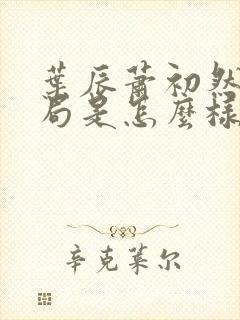 葉辰蕭初然
局是怎麼樣
辛克萊尔